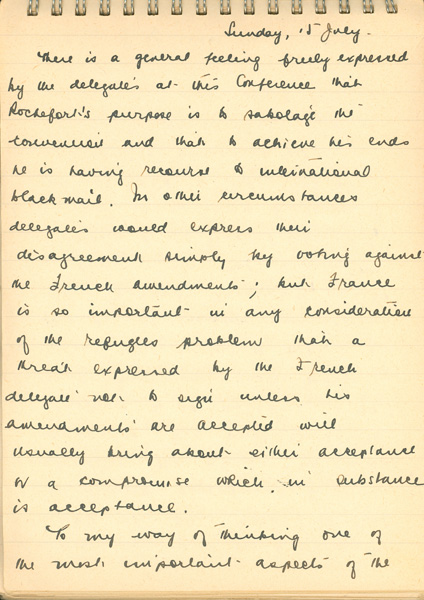 Sunday, 15 July.
There is a general feeling freely expressed
by the delegates at this Conference that
Rochefort's purpose is to sabotage the
convention and that to achieve his ends
he is having recourse to international
blackmail. In other circumstances
delegates would express their
disagreement simply by voting against
the French amendments; but France
is so important in any consideration
of the refugees problem that a
threat expressed by the French
delegate not to sign unless his
amendments are accepted will
usually bring about either acceptance
or a compromise which in substance
is acceptance.
To my way of thinking one of
the most important aspects of the